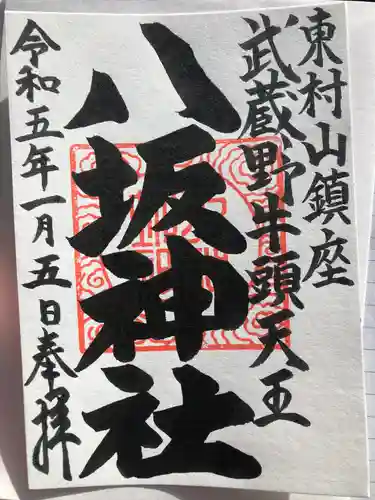 東村山鎮座
武蔵野牛頭天王
八坂神社
令和五年一月五日奉拝